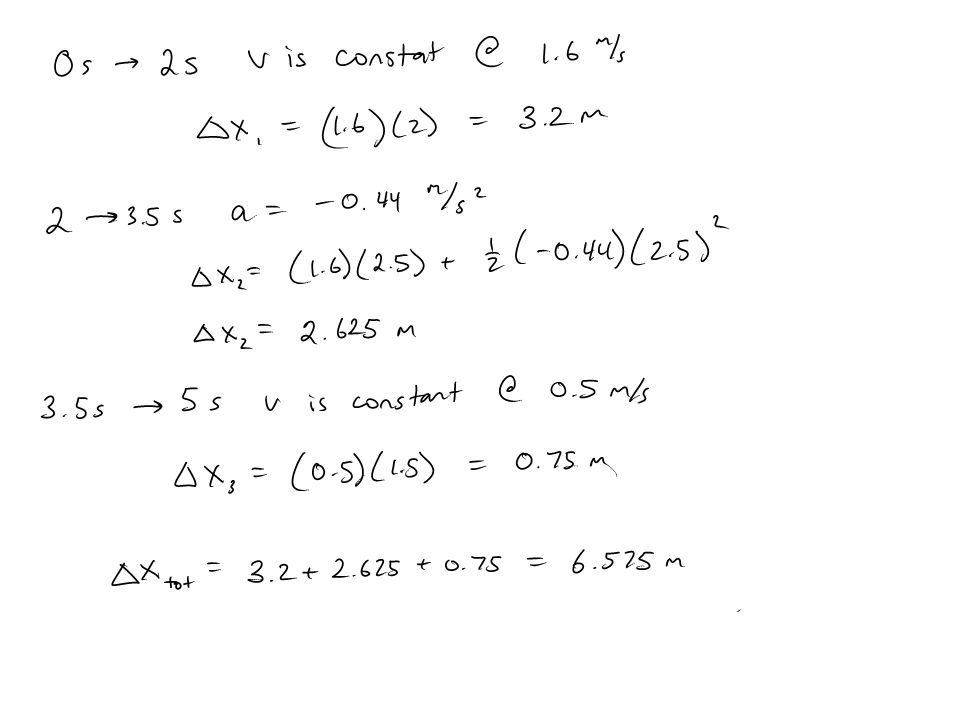 0s → 2s v is constat @ 1.6 m/s
Δx₁ = (1.6)(2) = 3.2 m
2 → 3.5 s a = -0.44 m/s²
Δx₂ = (1.6)(2.5) + ½(-0.44)(2.5)²
Δx₂ = 2.625 m
3.5s → 5s v is constant @ 0.5 m/s
Δx₃ = (0.5)(1.5) = 0.75 m
Δx tot = 3.2 + 2.625 + 0.75 = 6.575 m